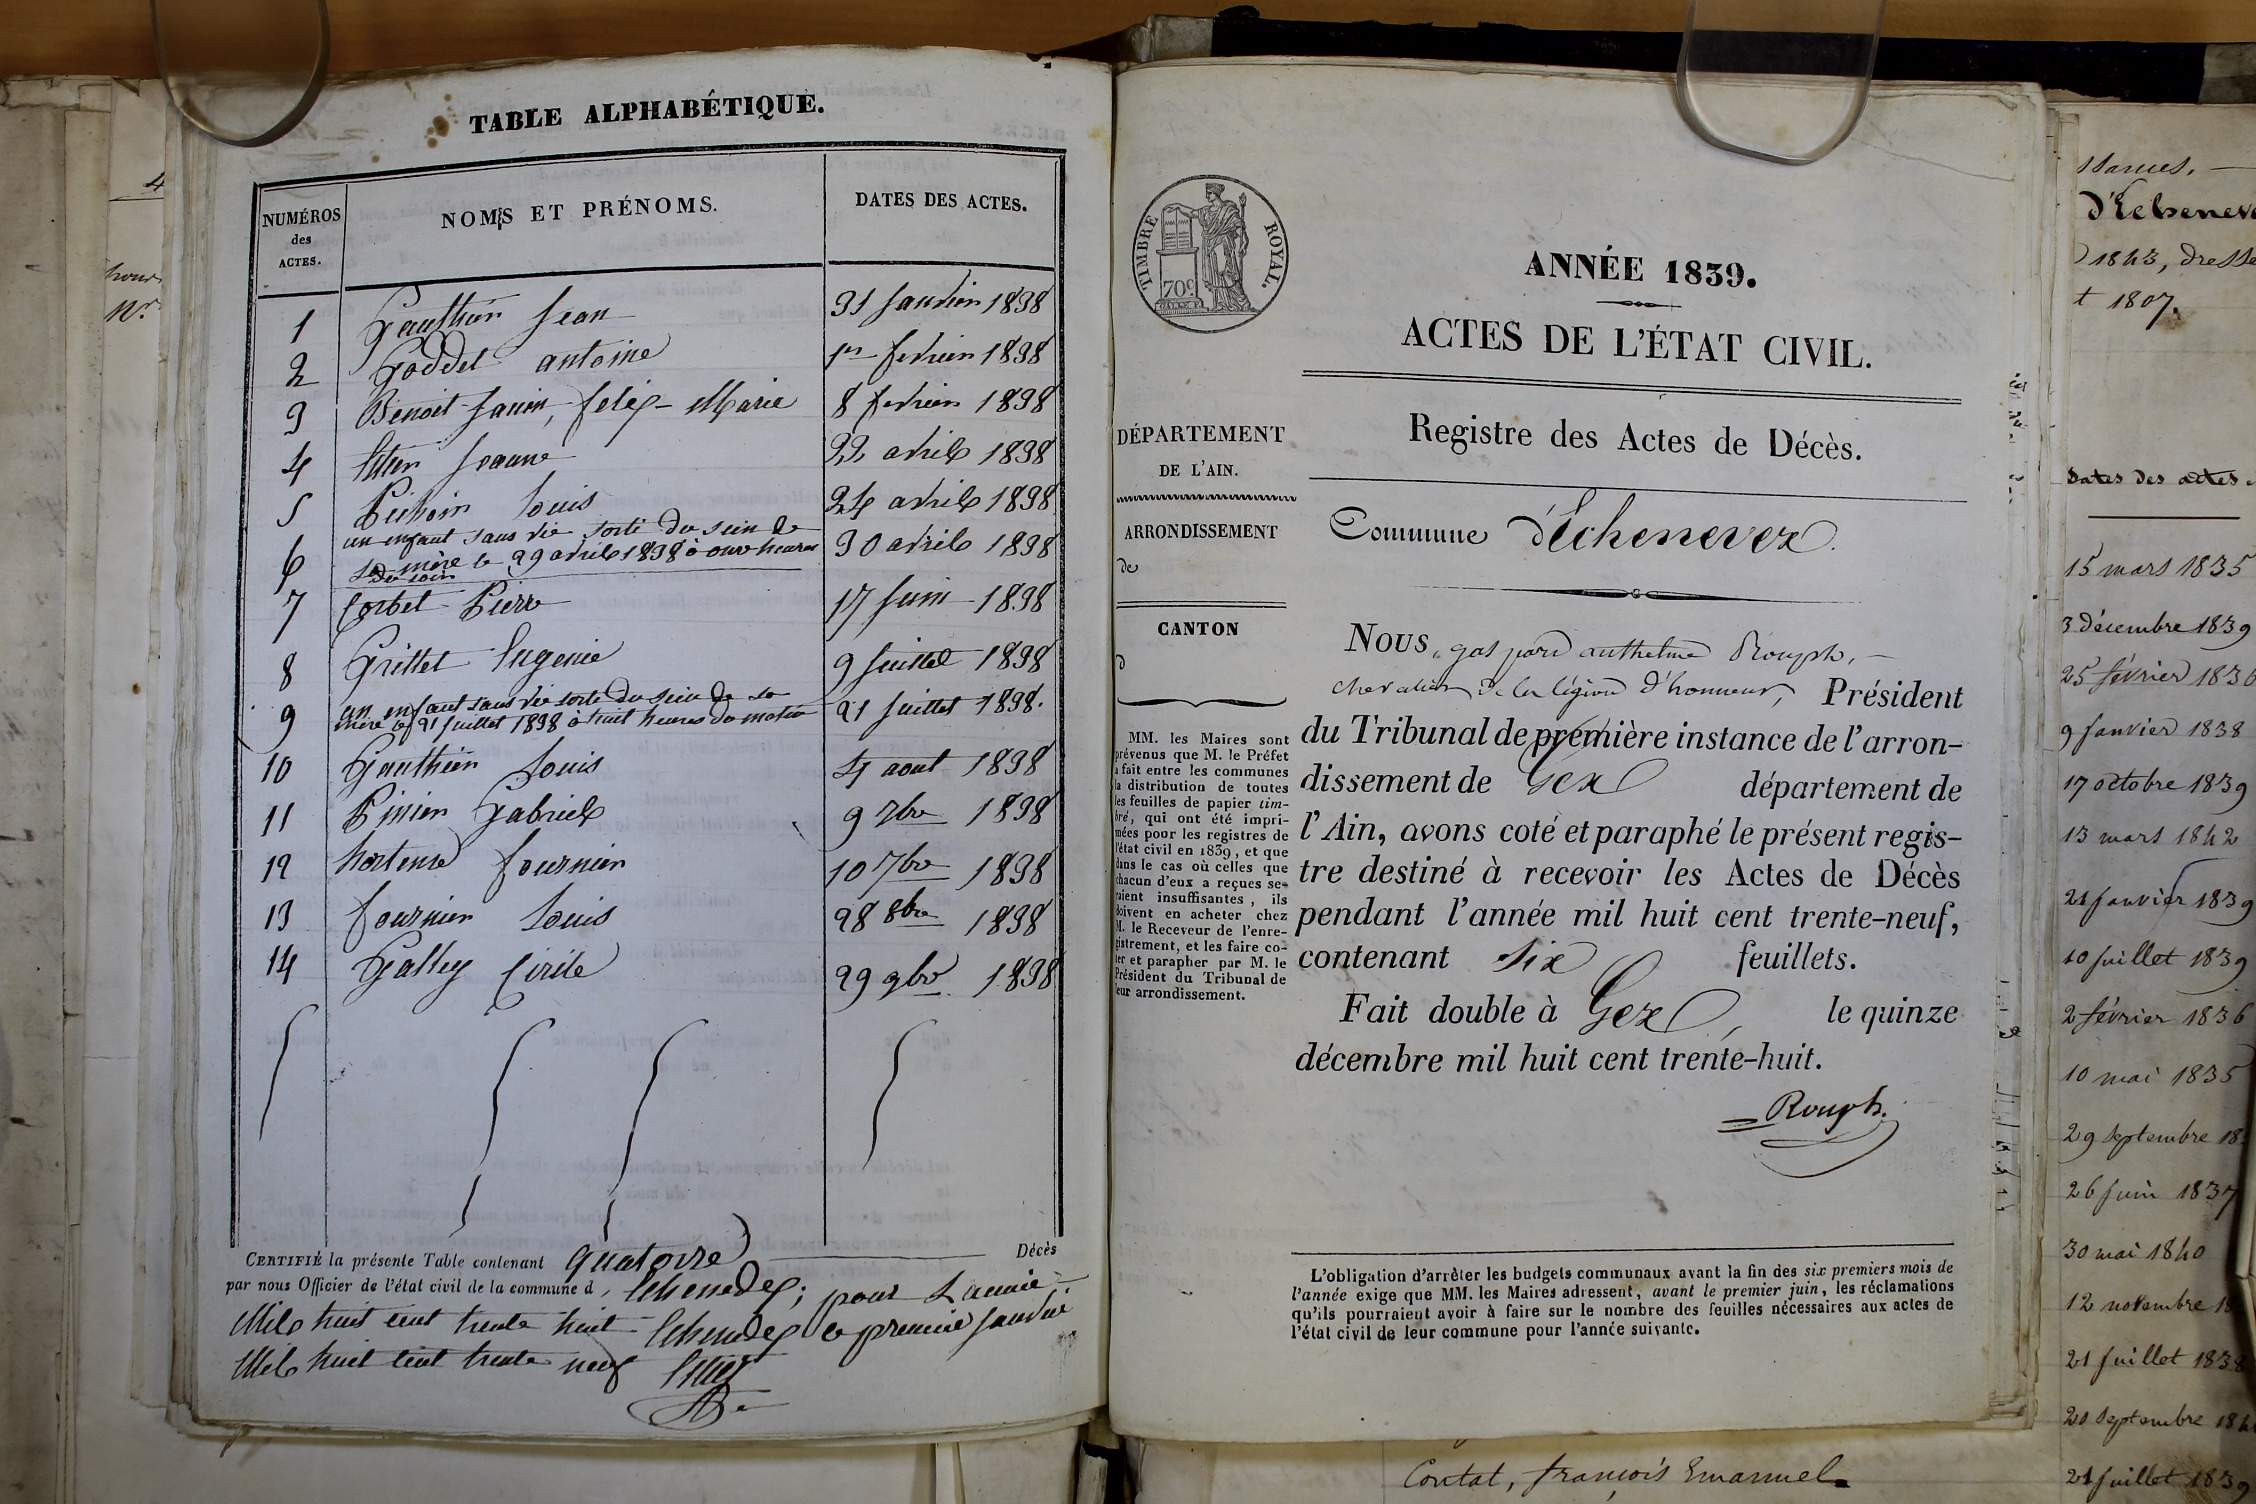 TABLE ALPHABÉTIQUE.
NUMÉROS des ACTES.
NOMS ET PRÉNOMS.
DATES DES ACTES.
1 Gauthier Jean 31 Janvier 1838
2 Goddet antoine 1er fevrier 1838
3 Benoit Janin, felix Marie 8 fevrier 1838
4 Jeanne 22 avril 1838
5 Louis 24 avril 1838
6 un enfant sans vie sorti du sein de
sa mère le 29 avril 1838 à onze heures
du soir
30 avril 1838
7 Corbet Pierre 17 Juin 1838
8 Grillet Eugenie 9 Juillet 1838
9 un enfant sans vie sorti du sein de sa
mère le 21 Juillet 1838 à huit heures du matin
21 Juillet 1838.
10 Gauthier Louis 4 aout 1838
11 Pinier Gabriel 9 7bre 1838
12 hortense fournier 10 7bre 1838
13 fournier Louis 28 8bre 1838
14 Galley Cirile 29 9bre 1838
CERTIFIÉ la présente Table contenant quatorze Décès
par nous Officier de l'état civil de la commune d Echenevex; pour L'année
Mil huit cent trente huit Echenevex le premier Janvier
Mil huit cent trente neuf
TIMBRE ROYAL.
70c
ANNÉE 1839.
ACTES DE L'ÉTAT CIVIL.
Registre des Actes de Décès.
DÉPARTEMENT
DE L'AIN.
ARRONDISSEMENT
de
CANTON
d
Commune d'Echenevex.
Nous, gaspard anthelme Rouph,
chevalier de la légion d'honneur, Président
du Tribunal de première instance de l'arron-
dissement de Gex département de
l'Ain, avons coté et paraphé le présent regis-
tre destiné à recevoir les Actes de Décès
pendant l'année mil huit cent trente-neuf,
contenant six feuillets.
Fait double à Gex, le quinze
décembre mil huit cent trente-huit.
Rouph.
MM. les Maires sont
prévenus que M. le Préfet
a fait entre les communes
la distribution de toutes
les feuilles de papier tim-
bré, qui ont été impri-
mées pour les registres de
l'état civil en 1839, et que
dans le cas où celles que
chacun d'eux a reçues se-
raient insuffisantes, ils
doivent en acheter chez
M. le Receveur de l'enre-
gistrement, et les faire co-
ter et parapher par M. le
Président du Tribunal de
leur arrondissement.
L'obligation d'arrêter les budgets communaux avant la fin des six premiers mois de
l'année exige que MM. les Maires adressent, avant le premier juin, les réclamations
qu'ils pourraient avoir à faire sur le nombre des feuilles nécessaires aux actes de
l'état civil de leur commune pour l'année suivante.
Contat, françois Emanuel
d'Echenev
1843, dresse
t 1807.
Dates des actes.
15 mars 1835
3 décembre 1839
25 février 1836
9 Janvier 1838
17 octobre 1839
13 mars 1842
21 Janvier 1839
10 Juillet 1839
2 février 1836
10 mai 1835
29 septembre 18
26 Juin 1837
30 mai 1840
12 novembre 18
21 Juillet 1838
20 septembre 184
21 Juillet 1839